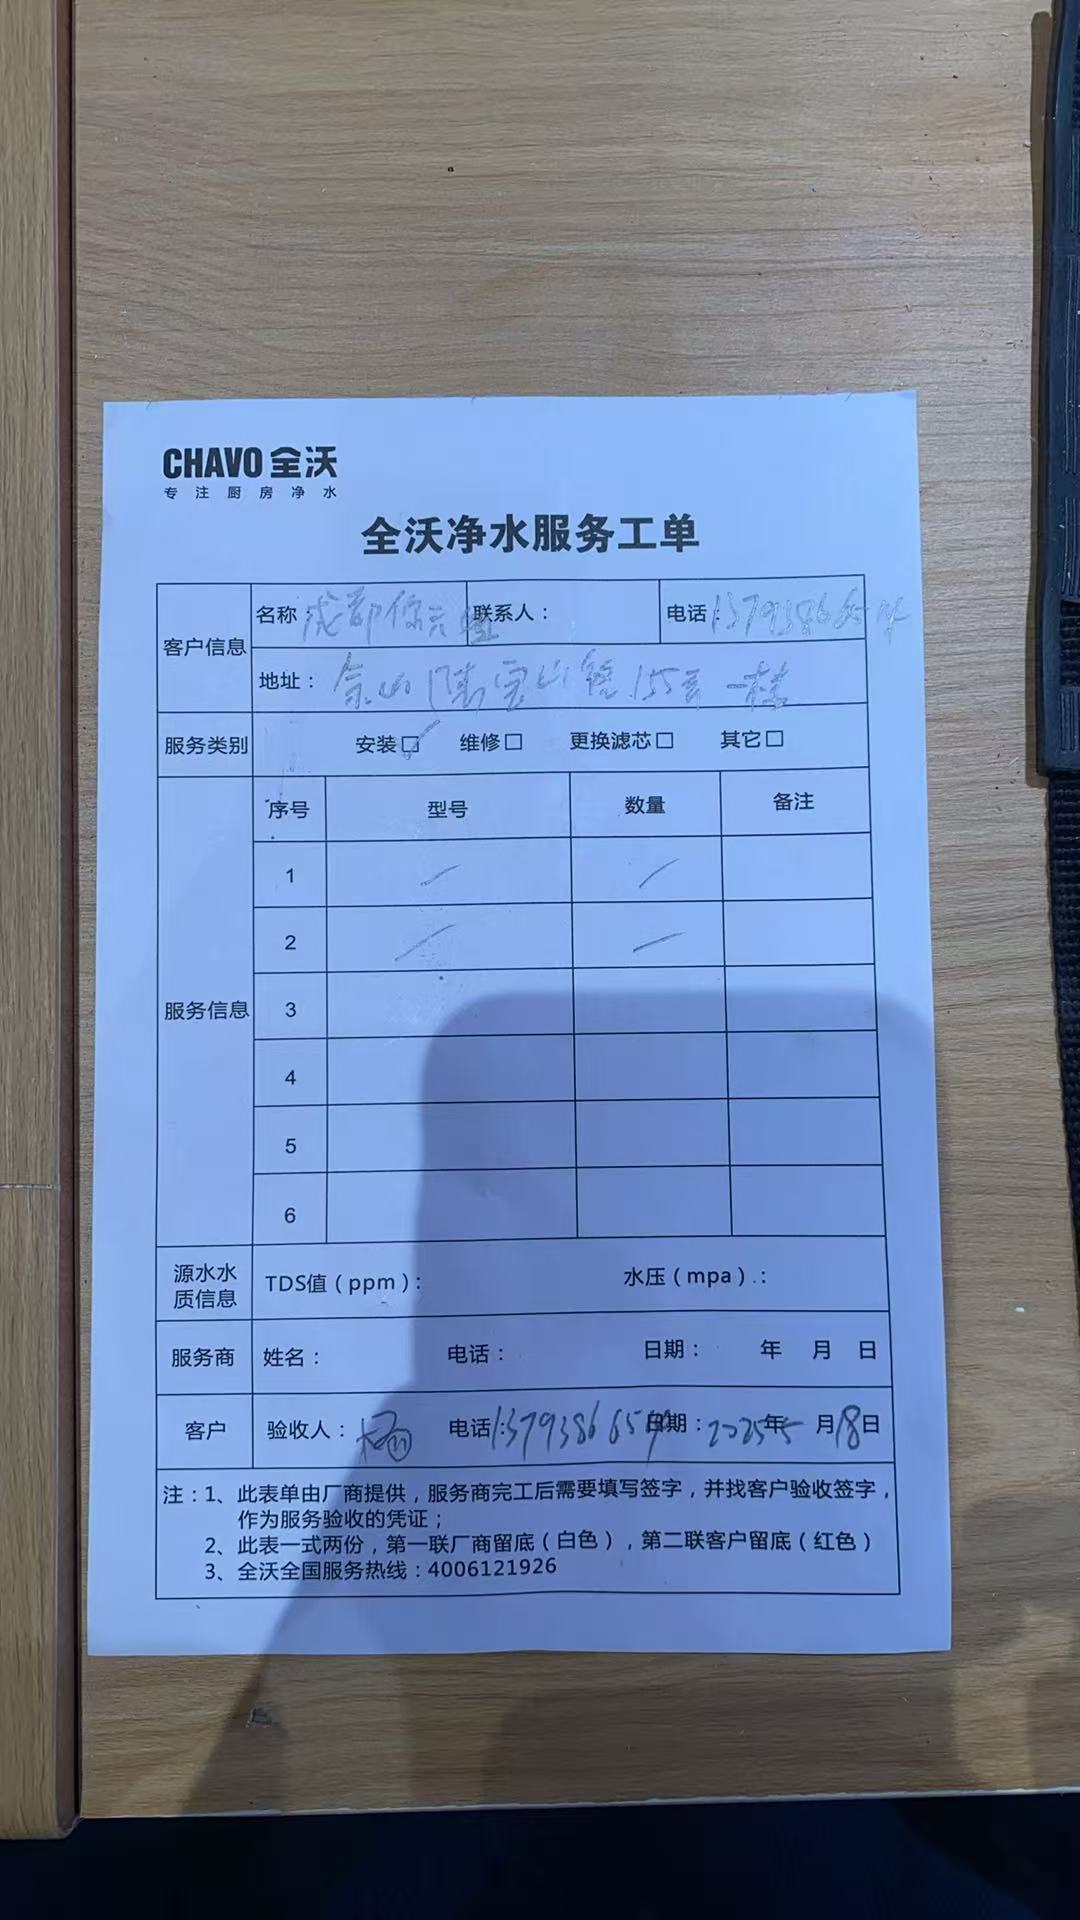 CHAVO 全沃
专注厨房净水
全沃净水服务工单
客户信息
名称：成都你六 联系人： 电话：
地址： 山 宝山 155号一楼
服务类别 安装☑ 维修□ 更换滤芯□ 其它□
服务信息
序号 型号 数量 备注
1 / /
2 / /
3
4
5
6
源水水质信息 TDS值（ppm）： 水压（mpa）：
服务商 姓名： 电话： 日期： 年 月 日
客户 验收人：杨 电话： 日期：2025年5月18日
注：1、此表单由厂商提供，服务商完工后需要填写签字，并找客户验收签字，
作为服务验收的凭证；
2、此表一式两份，第一联厂商留底（白色），第二联客户留底（红色）
3、全沃全国服务热线：4006121926